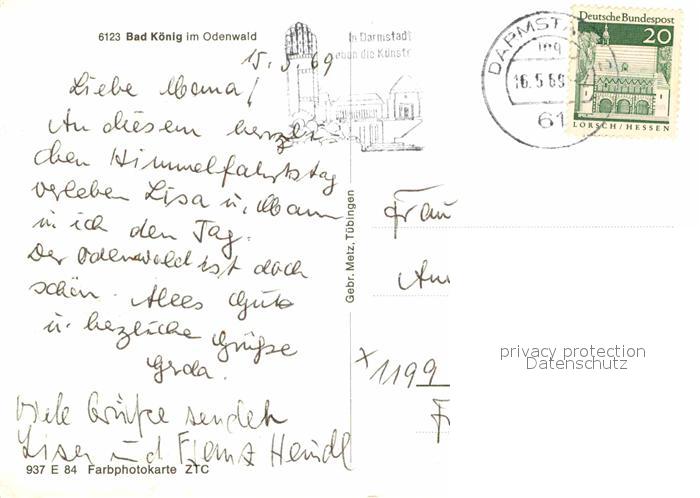 6123 Bad König im Odenwald
15.5.69
In Darmstadt
leben die Künste
DARMSTADT
16.5.69
61
Deutsche Bundespost
20
LORSCH/HESSEN
Liebe Mama!
An diesem herzli
chen Himmelfahrtstag
verleben Lisa u. Mann
u. ich den Tag.
Der Odenwald ist doch
schön. Alles Gute
u. herzliche Grüße
Gerda.
Viele Grüße senden
und Franz Heindl
Gebr. Metz, Tübingen
Frau
x 1199
F
privacy protection
Datenschutz
937 E 84 Farbphotokarte ZTC